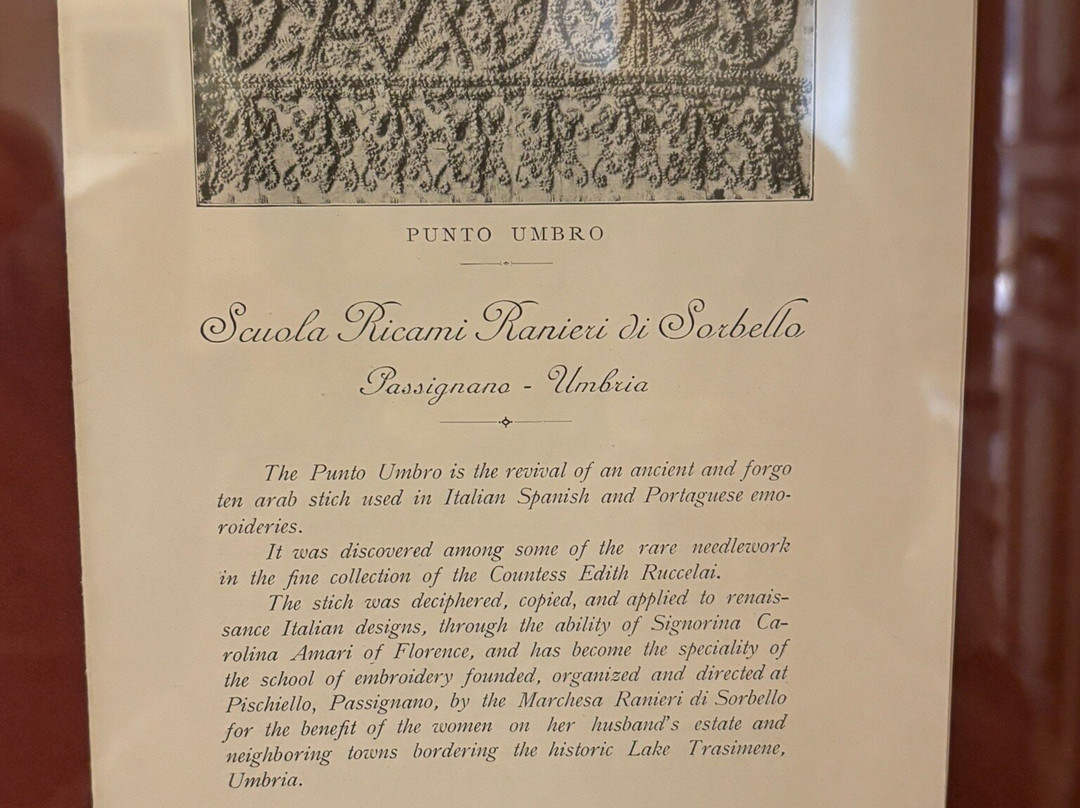 PUNTO UMBRO
Scuola Ricami Ranieri di Sorbello
Passignano - Umbria
The Punto Umbro is the revival of an ancient and forgo
ten arab stich used in Italian Spanish and Portaguese emo-
roideries.
It was discovered among some of the rare needlework
in the fine collection of the Countess Edith Ruccelai.
The stich was deciphered, copied, and applied to renais-
sance Italian designs, through the ability of Signorina Ca-
rolina Amari of Florence, and has become the speciality of
the school of embroidery founded, organized and directed at
Pischiello, Passignano, by the Marchesa Ranieri di Sorbello
for the benefit of the women on her husband's estate and
neighboring towns bordering the historic Lake Trasimene,
Umbria.